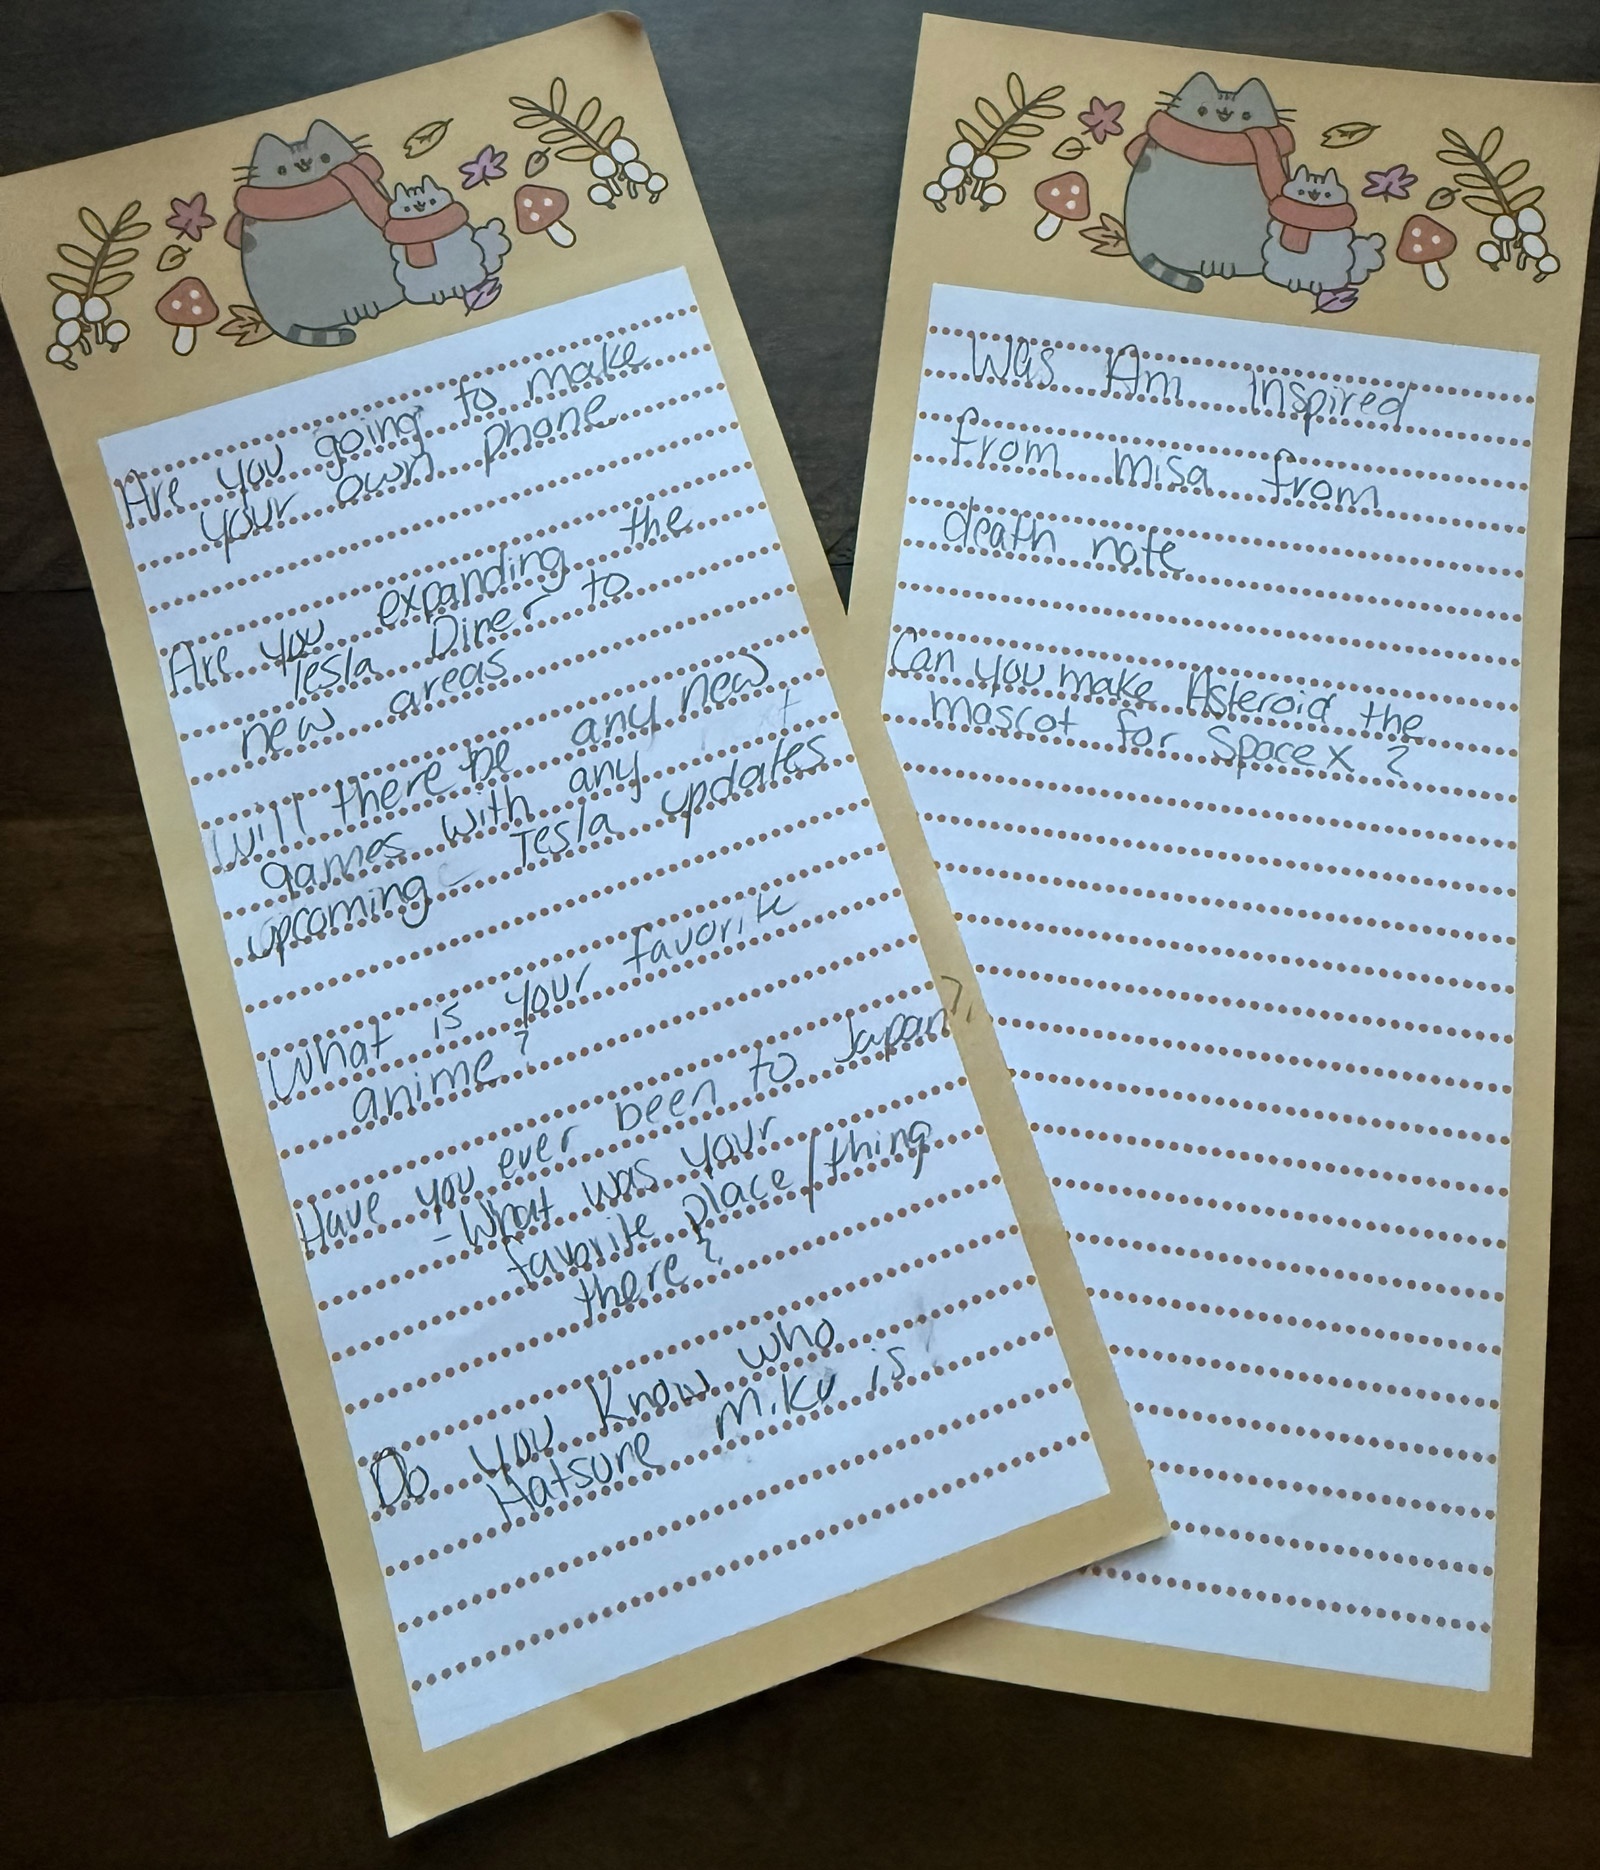 Are you going to make
your own phone
Are you expanding the
Tesla Diner to
new areas
Will there be any new
games with any
upcoming Tesla updates
What is your favorite
anime?
Have you ever been to Japan?
- What was your
favorite place/thing
there?
Do you know who
Hatsune Miku is
Was Ani Inspired
from misa from
death note
Can you make Asteroid the
mascot for Space X ?